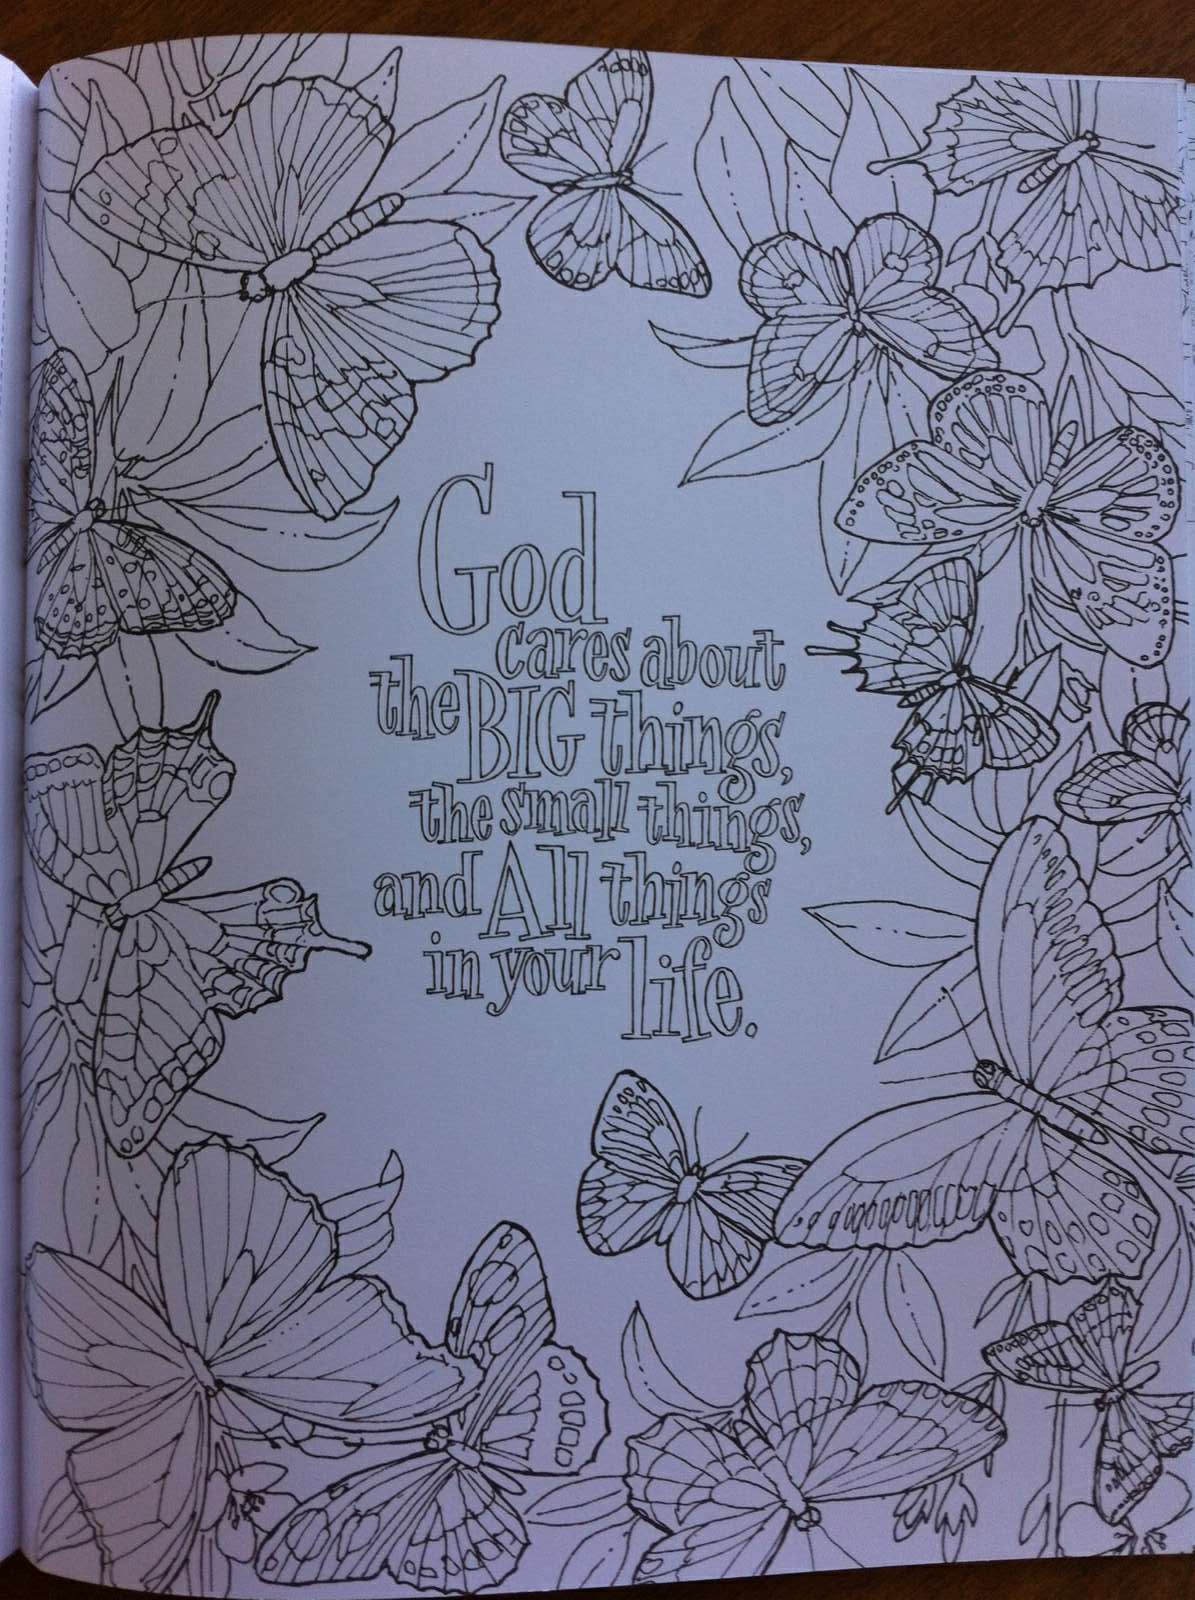 God
cares about
the BIG things,
the small things,
and All things
in your life.